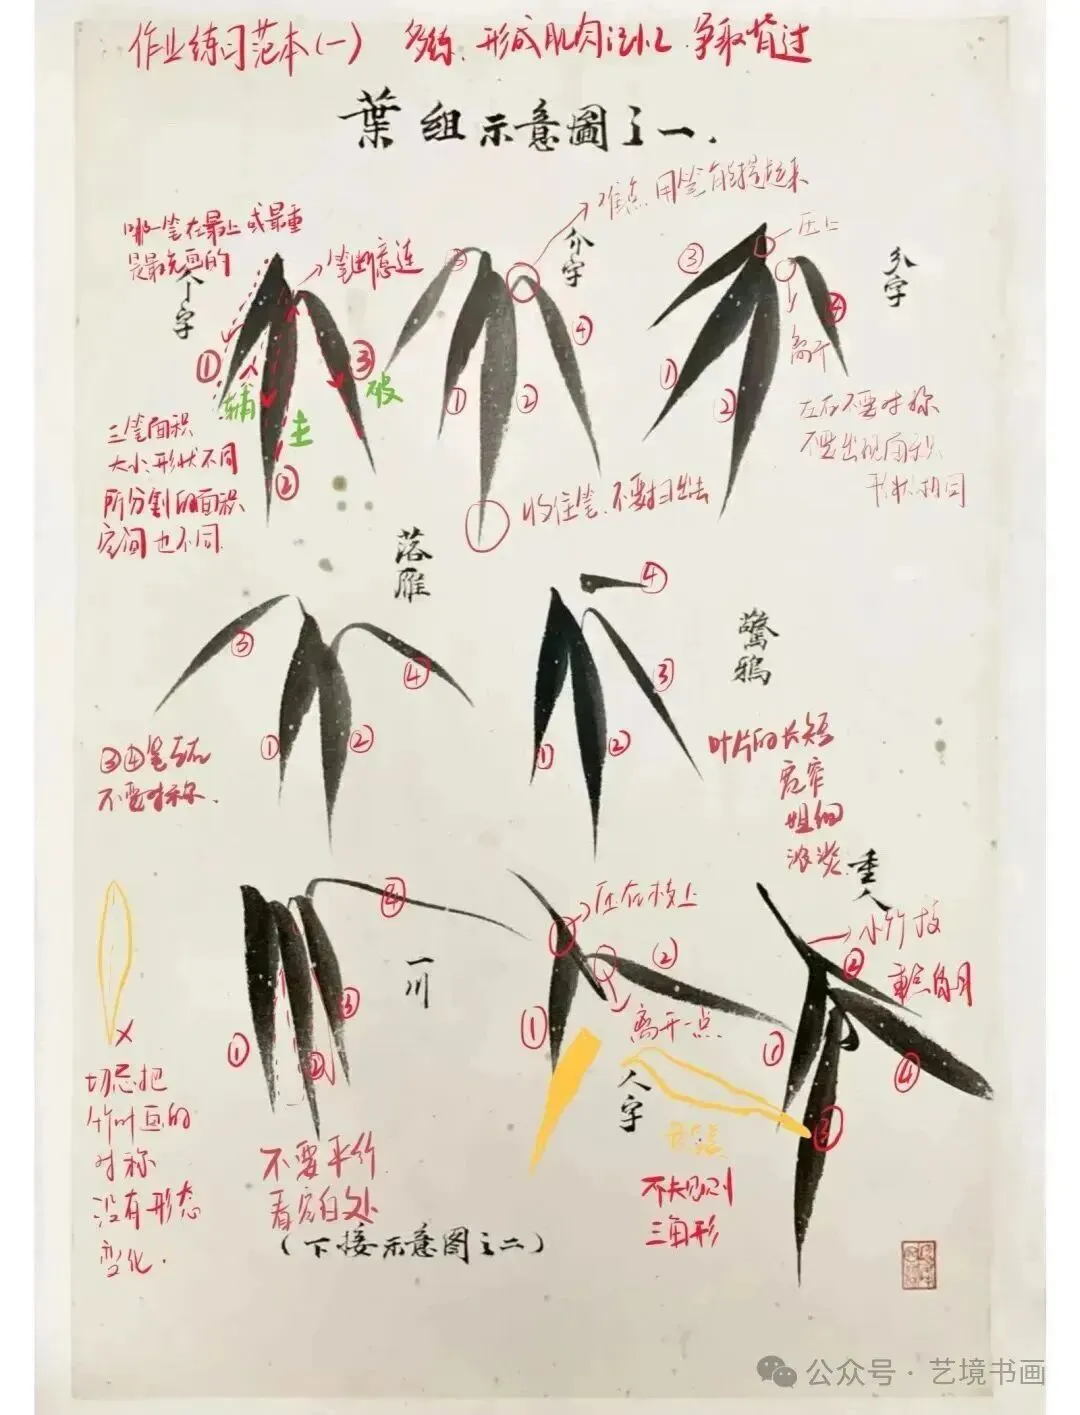 作业练习范本(一) 多练、形成肌肉记忆、争取背过
葉組示意圖之一.
哪一笔在最上或最重
是最先画的
个字
笔断意连
①
③
破
辅
主
②
三笔面积
大小、形状不同
所分割的面积
空间也不同.
难点 用笔能提起来
介字
③
④
①
②
收住笔.不要扫出去
压上
分字
③
④
离开
①
②
左右不要对称
不要出现面积
形状相同
落雁
③
④
①
②
③④笔左右
不要对称.
④
驚鴉
③
①
②
叶片的长短
宽窄
粗细
浓淡
④
一川
①
②
③
不要平行
看空白处
×
切忌把
竹叶画的
对称
没有形态
变化.
压在枝上
②
①
离开一点
人字
不规则
三角形
重人
小竹枝
②
①
④
③
(下接示意图之二)
公众号·艺境书画